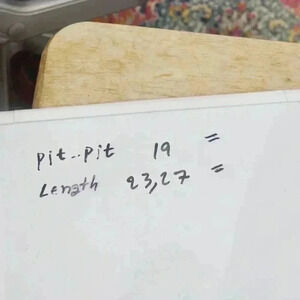 pit..pit 19 =
Length 23,27 =